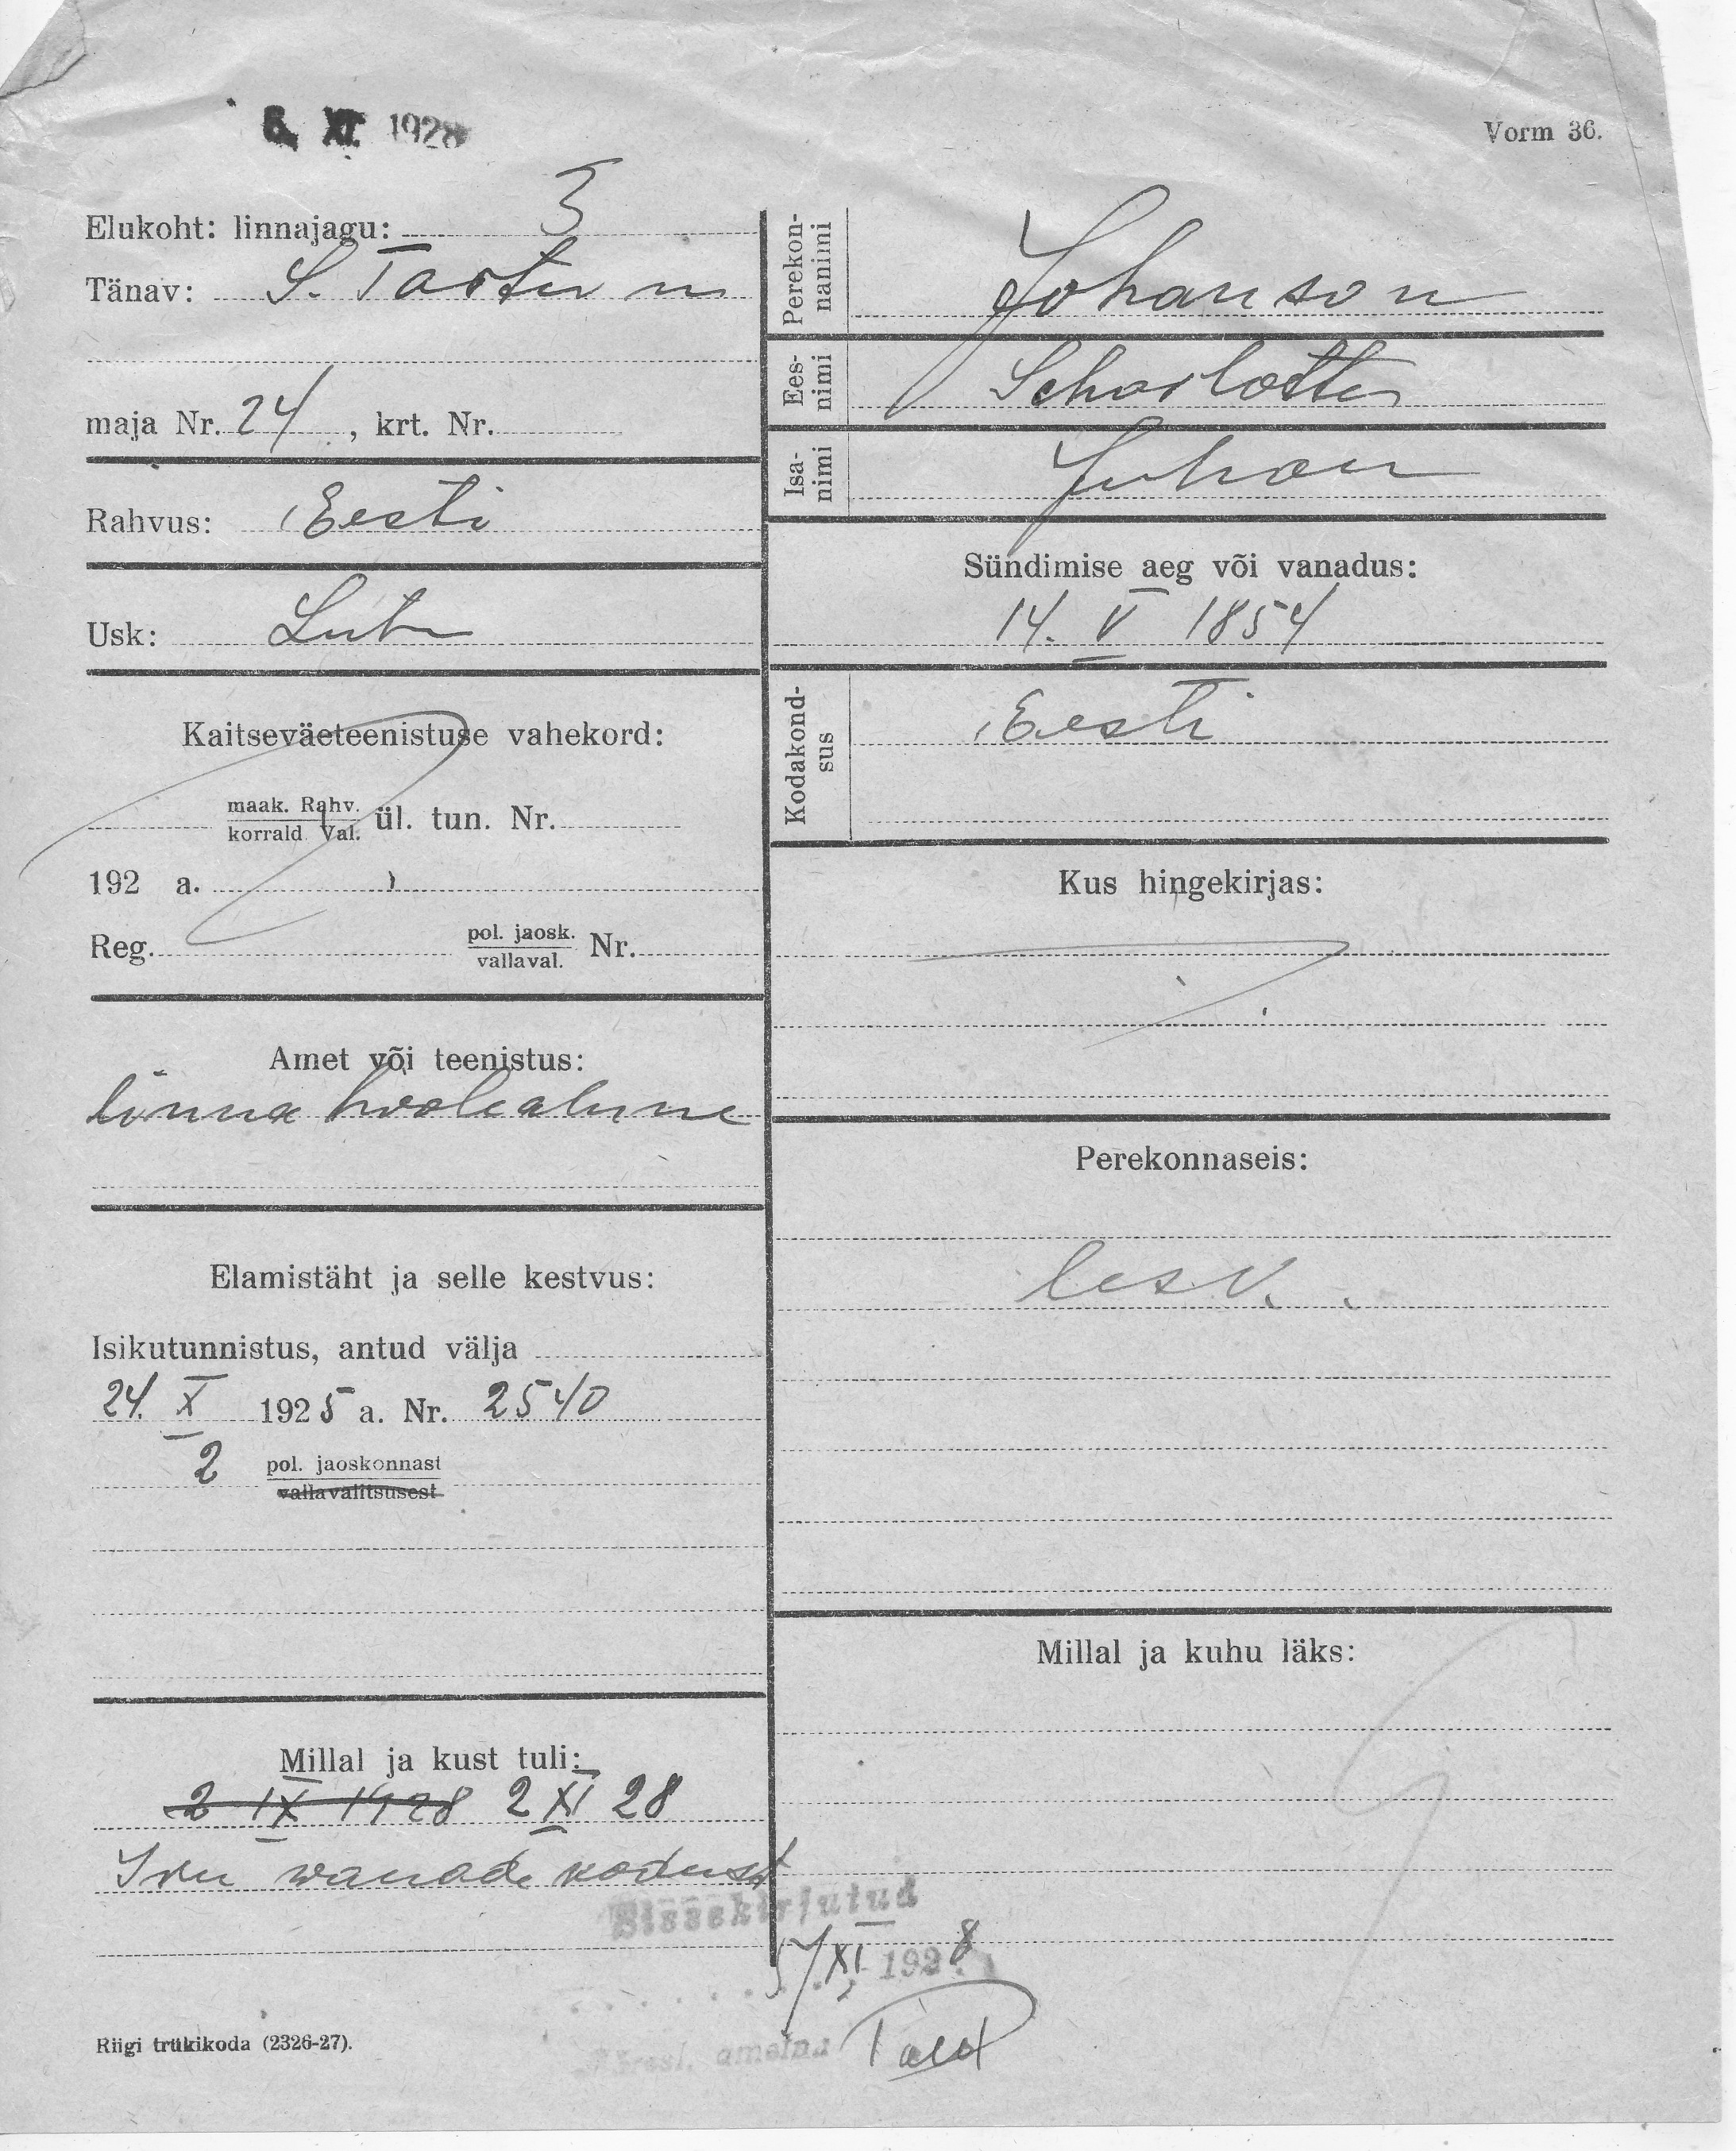 6. XI. 1928
Vorm 36.
Elukoht: linnajagu: 3
Tänav: S. Tartu m
maja Nr. 24, krt. Nr.
Rahvus: Eesti
Usk: Lut
Kaitseväeteenistuse vahekord:
maak. Rahv.
korrald. Val. ül. tun. Nr.
192 a.
Reg. pol. jaosk. Nr.
vallaval.
Amet või teenistus:
linna hoolealune
Elamistäht ja selle kestvus:
Isikutunnistus, antud välja
24. X 1925 a. Nr. 2540
2 pol. jaoskonnast
vallavalitsusest
Millal ja kust tuli:
2 IX 1928 2 XI 28
Iru wanade kodust
Perekonnanimi Johanson
Eesnimi Scharlotte
Isanimi Juhan
Sündimise aeg või vanadus:
14. V 1854
Kodakondsus Eesti
Kus hingekirjas:
Perekonnaseis:
lesk.
Millal ja kuhu läks:
Sissekirjutud
XI 1928
Riigi trükikoda (2326-27).